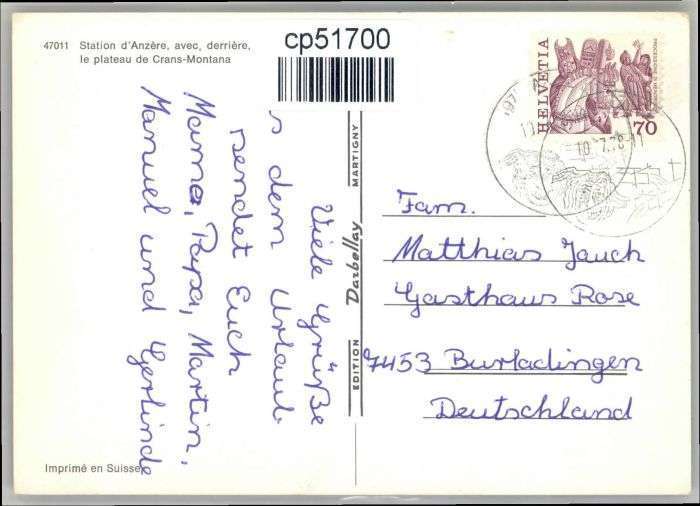 47011 Station d'Anzère, avec, derrière,
le plateau de Crans-Montana
cp51700
HELVETIA
70
10.7.78-11
Viele Grüße
s dem Urlaub
sendet Euch
Mama, Papa, Martin,
Manuel und Gerlinde
EDITION Darbellay MARTIGNY
Fam.
Matthias Jauch
Gasthaus Rose
7453 Burladingen
Deutschland
Imprimé en Suisse